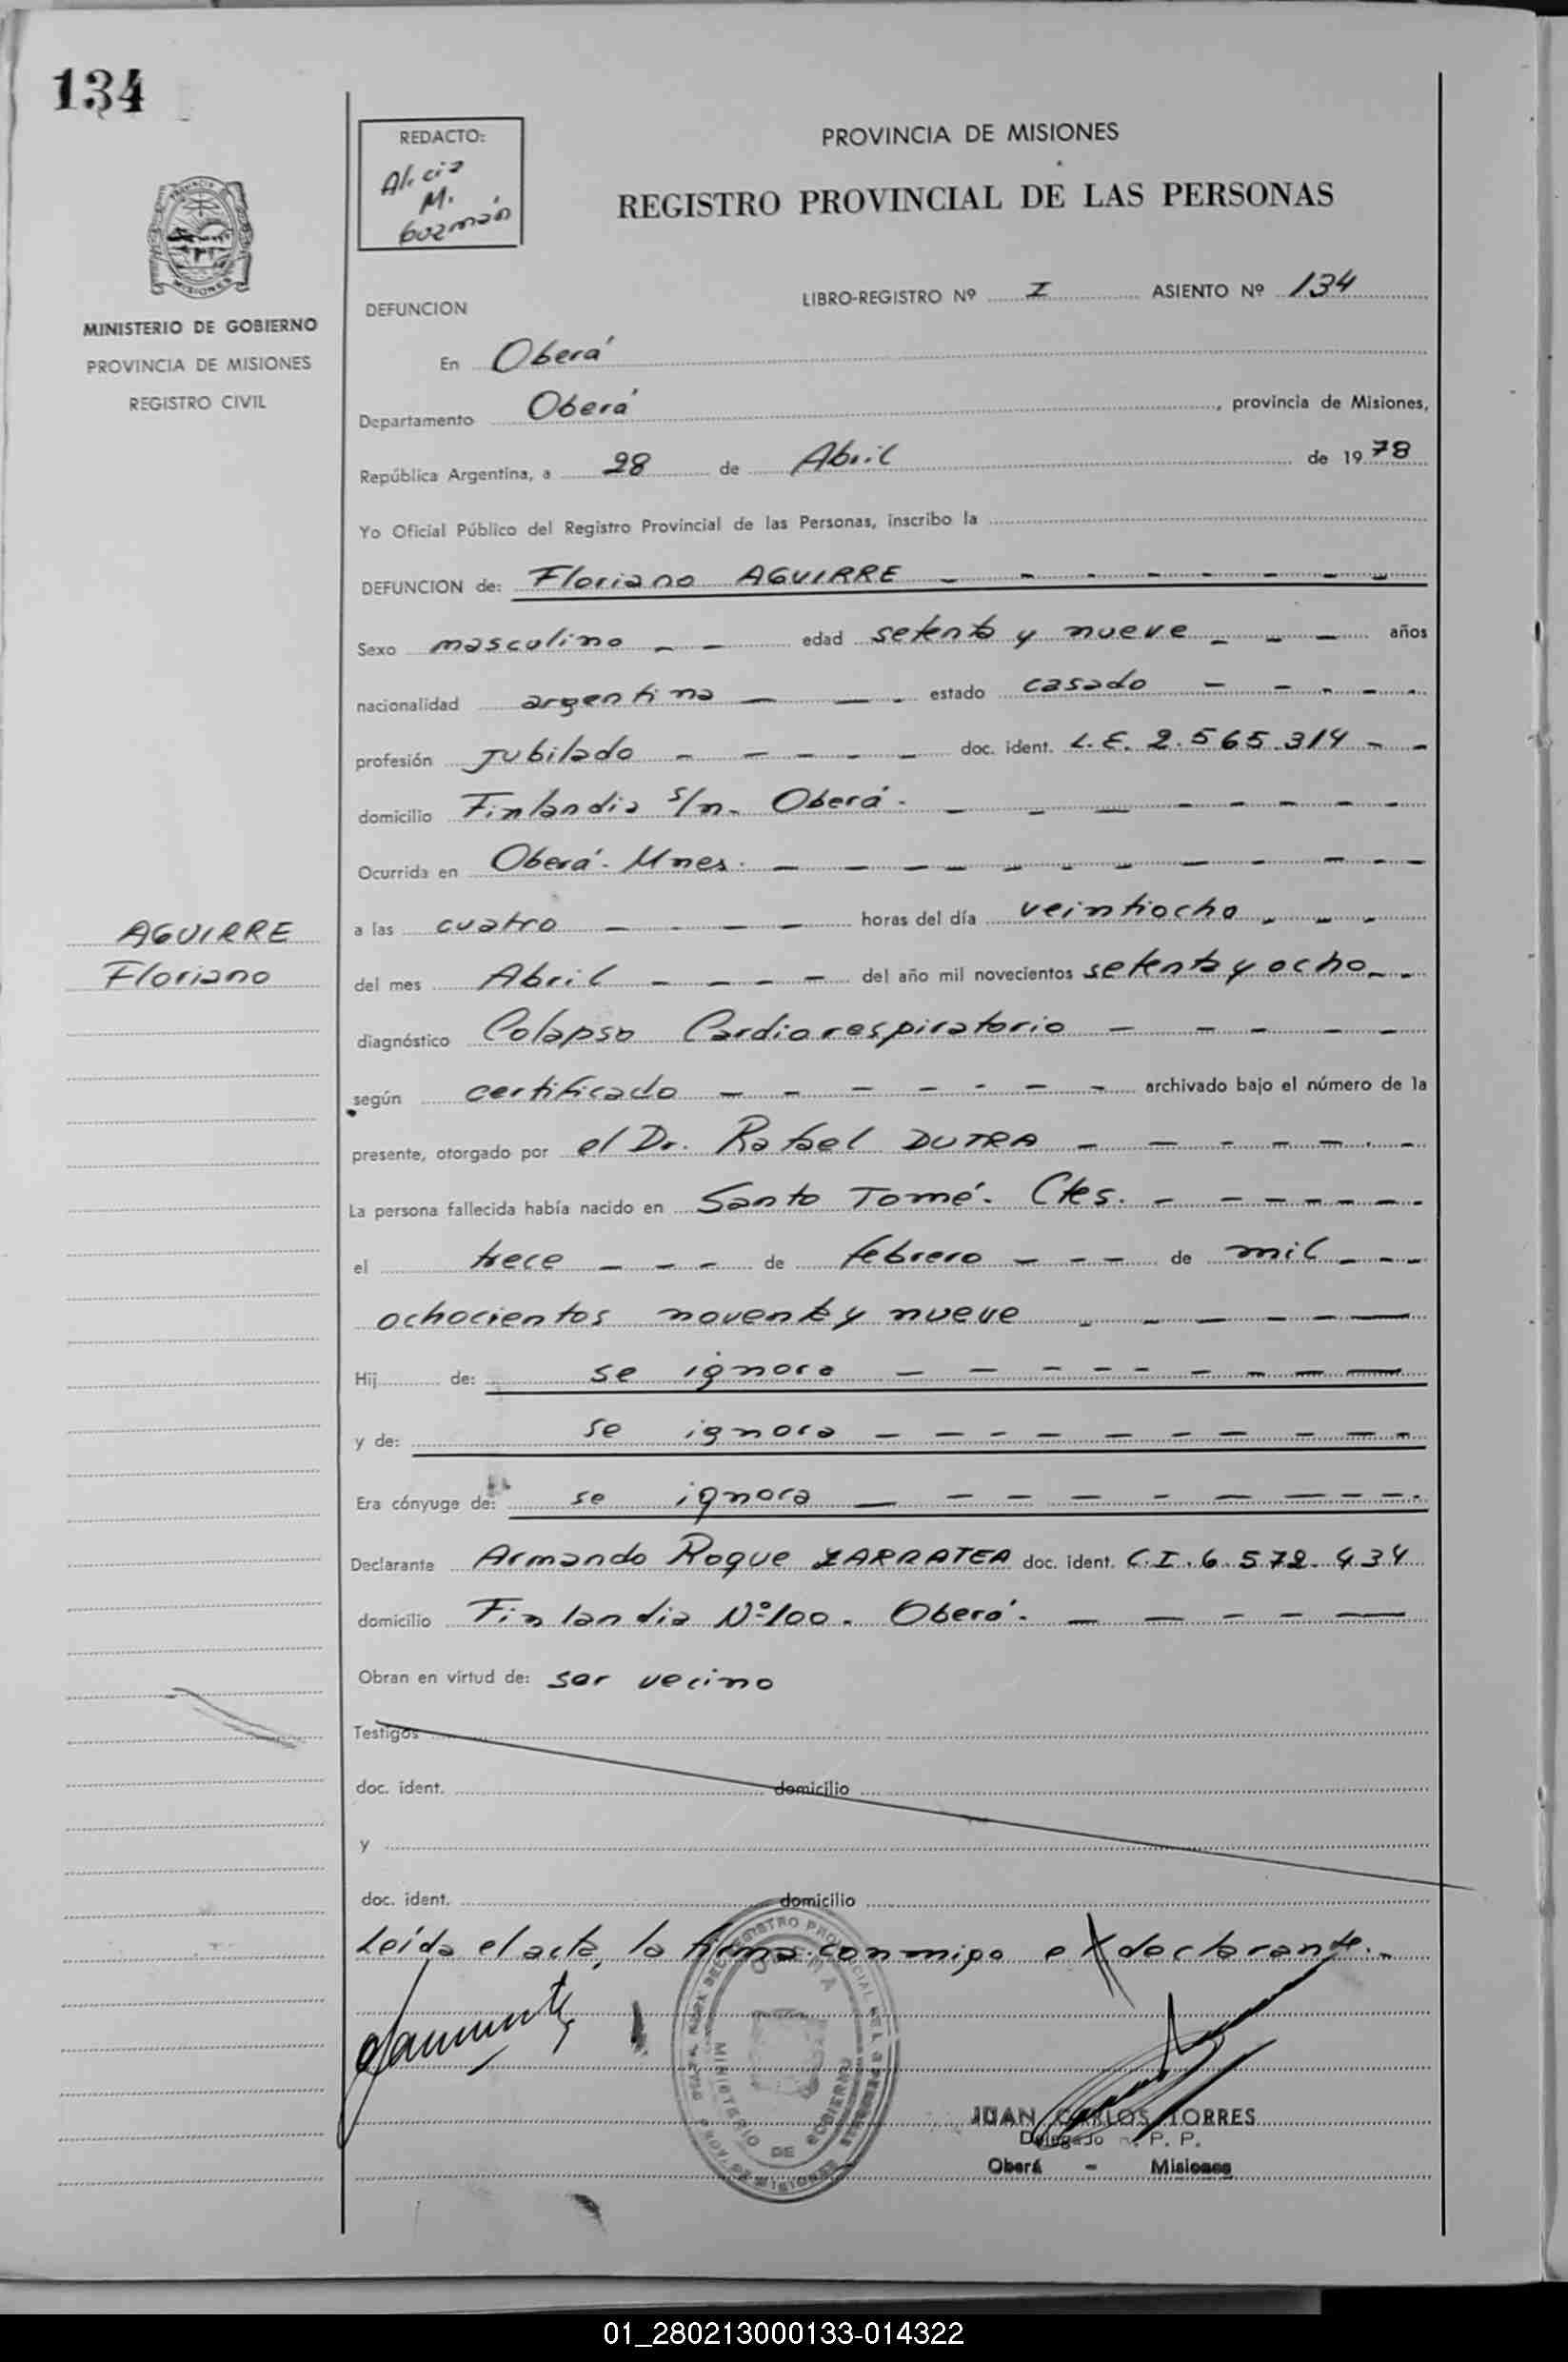 134
REDACTO:
Alicia
M.
Guzmán
PROVINCIA DE MISIONES
REGISTRO PROVINCIAL DE LAS PERSONAS
MISIONES
MINISTERIO DE GOBIERNO
PROVINCIA DE MISIONES
REGISTRO CIVIL
DEFUNCION
LIBRO-REGISTRO Nº I ASIENTO Nº 134
En Oberá
Departamento Oberá, provincia de Misiones,
República Argentina, a 28 de Abril de 1978
Yo Oficial Público del Registro Provincial de las Personas, inscribo la
DEFUNCION de: Floriano AGUIRRE
Sexo masculino edad setenta y nueve años
nacionalidad argentina estado casado
profesión Jubilado doc. ident. L.E. 2.565.314
domicilio Finlandia s/n. Oberá.
Ocurrida en Oberá. Mnes.
AGUIRRE
Floriano
a las cuatro horas del día veintiocho
del mes Abril del año mil novecientos setenta y ocho
diagnóstico Colapso Cardiorespiratorio
según certificado archivado bajo el número de la
presente, otorgado por el Dr. Rafael DUTRA
La persona fallecida había nacido en Santo Tomé. Ctes.
el trece de febrero de mil
ochocientos noventa y nueve
Hij de: se ignora
y de: se ignora
Era cónyuge de: se ignora
Declarante Armando Roque ZARRATEA doc. ident. C.I. 6.572.434
domicilio Finlandia Nº 100. Oberá.
Obran en virtud de: ser vecino
Testigos
doc. ident. domicilio
y
doc. ident. domicilio
Leída el acta, la firma conmigo el declarante.
MINISTERIO DE GOBIERNO
JUAN CARLOS TORRES
Delegado R. P. P.
Oberá - Misiones
01_280213000133-014322